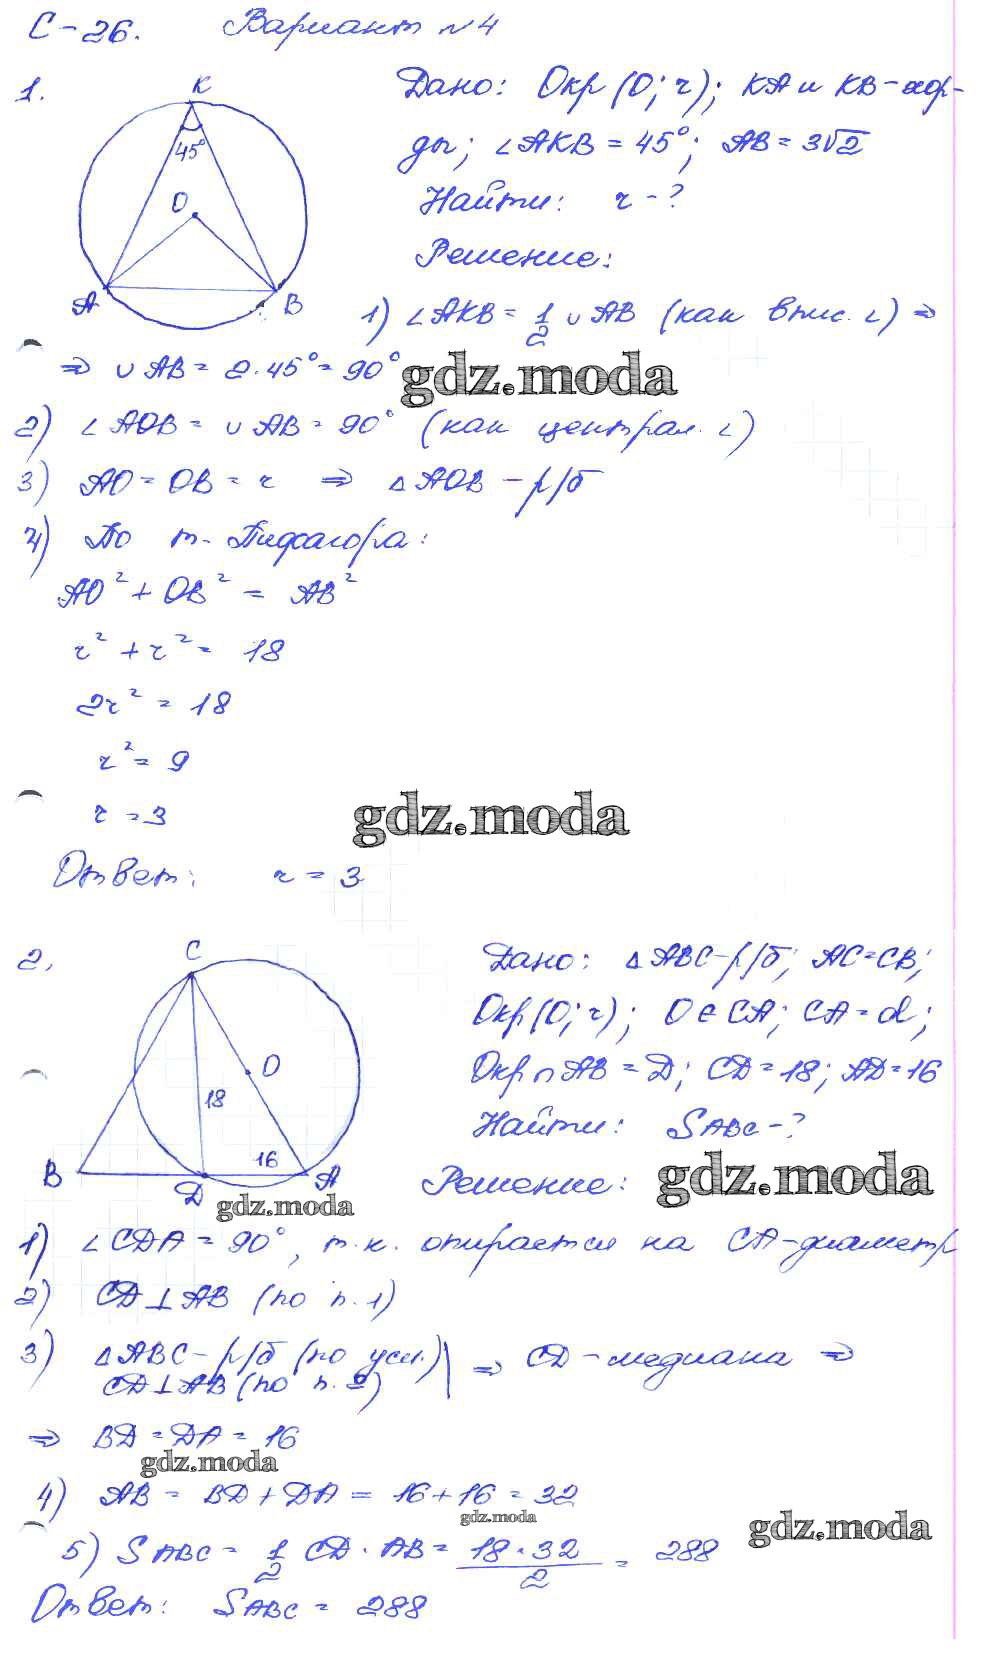 С-26. Вариант №4
1.
K
45°
O
A
B
Дано: Окр(O; r); KA и KB-хор-
ды; ∠AKB = 45°; AB = 3√2
Найти: r - ?
Решение:
1) ∠AKB = 1/2 ∪ AB (как впис. ∠) ⇒
⇒ ∪ AB = 2·45° = 90°
gdz.moda
2) ∠AOB = ∪ AB = 90° (как централ. ∠)
3) AO = OB = r ⇒ △AOB - р/б
4) По т. Пифагора:
AO² + OB² = AB²
r² + r² = 18
2r² = 18
r² = 9
r = 3
gdz.moda
Ответ: r = 3
2.
C
O
18
16
B
D
A
Дано: △ABC-р/б; AC=CB;
Окр(O; r); O∈CA; CA = d;
Окр∩AB = D; CD = 18; AD=16
Найти: SABC - ?
gdz.moda
Решение:
gdz.moda
1) ∠CDA = 90°, т.к. опирается на CA-диаметр
2) CD⊥AB (по п.1)
3) △ABC-р/б (по усл.) ⇒ CD-медиана ⇒
CD⊥AB (по п. 2)
⇒ BD = DA = 16
gdz.moda
4) AB = BD + DA = 16+16 = 32
gdz.moda
gdz.moda
5) SABC = 1/2 CD · AB = 18·32/2 = 288
Ответ: SABC = 288